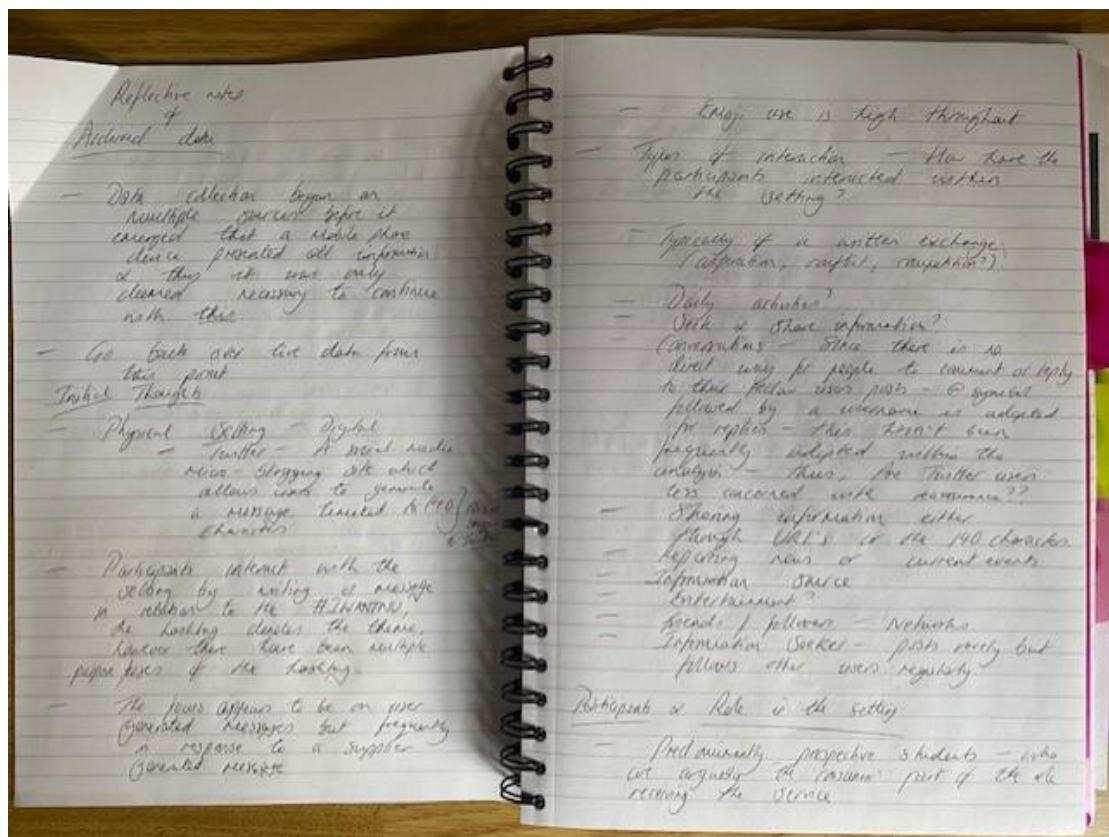 Reflective notes
&
Archived data
- Data collection began on
multiple sources before it
emerged that a mobile phone
device presented all information
& thus it was only
deemed necessary to continue
with this
- Go back over live data from
this point
Initial Thoughts
- Physical Setting - Digital
- Twitter - A social media
micro-blogging site which
allows users to generate
a message limited to 140
characters
- Participants interact with the
setting by writing a message
in relation to the
the hashtag denotes the theme,
however there have been multiple
of the hashtag.
- The focus appears to be on user
generated messages but frequently
in response to a supplier
generated message
- Emoji use is high throughout
- Types of interaction - How have the
participants interacted within
the setting?
- Typically of a written exchange
(cooperation, conflict, competition?)
- Daily activities?
- Seek & share information?
- Conversations - Since there is no
direct way for people to comment or reply
to their fellow users posts - @ symbol
followed by a username is adopted
for replies - this hasn't been
frequently adopted within the
analysis - thus, Are Twitter users
less concerned with ??
- Sharing information either
through URL's or the 140 characters
- Reporting news or current events
- Information Source
- Entertainment?
- friends / followers - Networks
- Information Seeker - posts rarely but
follows other users regularly.
Participants & Role in the setting
- Predominantly prospective students - who
are arguably the consumer part of the role
receiving the service